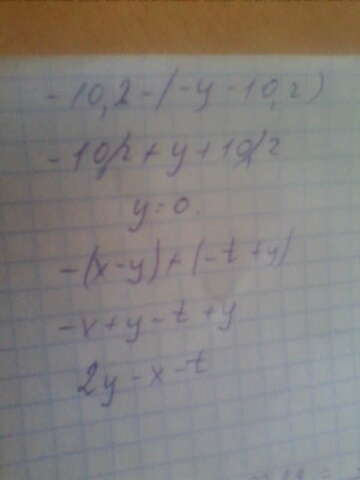 -10,2-(-y-10,2)
-10,2+y+10,2
y=0.
-(x-y)+(-t+y)
-x+y-t+y
2y-x-t